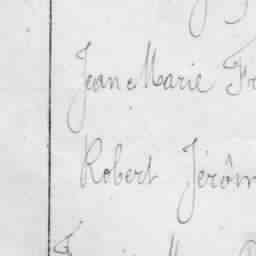 Jean Marie Fr
Robert Jérôm